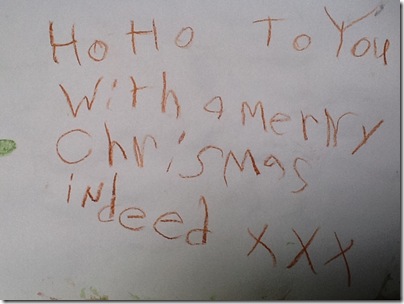 HoHo To You
With a merry
Chrismas
indeed xxx